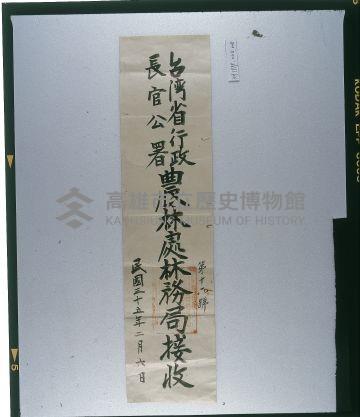 台湾省行政
長官公署
農林處林務局接收
第十九號
民國三十五年二月六日
高雄市立歷史博物館
KAOHSIUNG MUSEUM OF HISTORY
KODAK
5